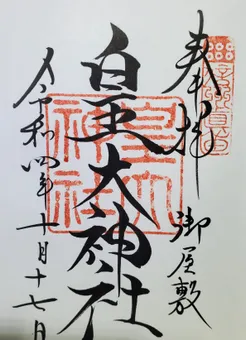 奉拝
御屋敷
皇大神社
皇大
神社
令和四年十月十七日